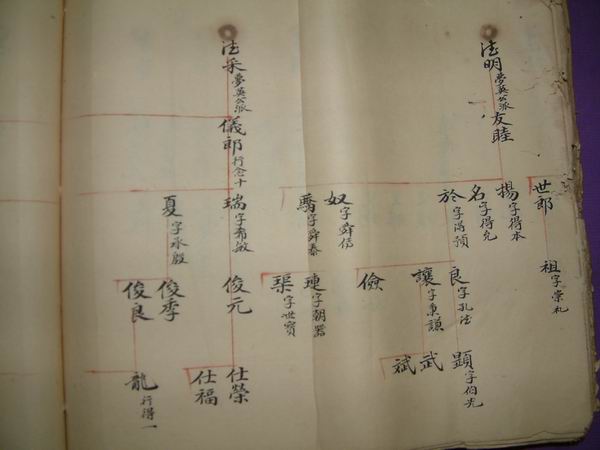 法明 夢英公派
友睦
世郎
祖 字崇礼
揚 字得本
名 字得允
於 字済預
良 字孔法
顕 字伯光
讓 字東謙
武
儉
斌
奴 字舜信
字舜泰
璉 字朝器
渠 字世寶
法采 夢英公派
儀郎 行念十
瑞 字希敏
俊元
仕榮
仕福
夏 字承殷
俊季
俊良
龍 行得一